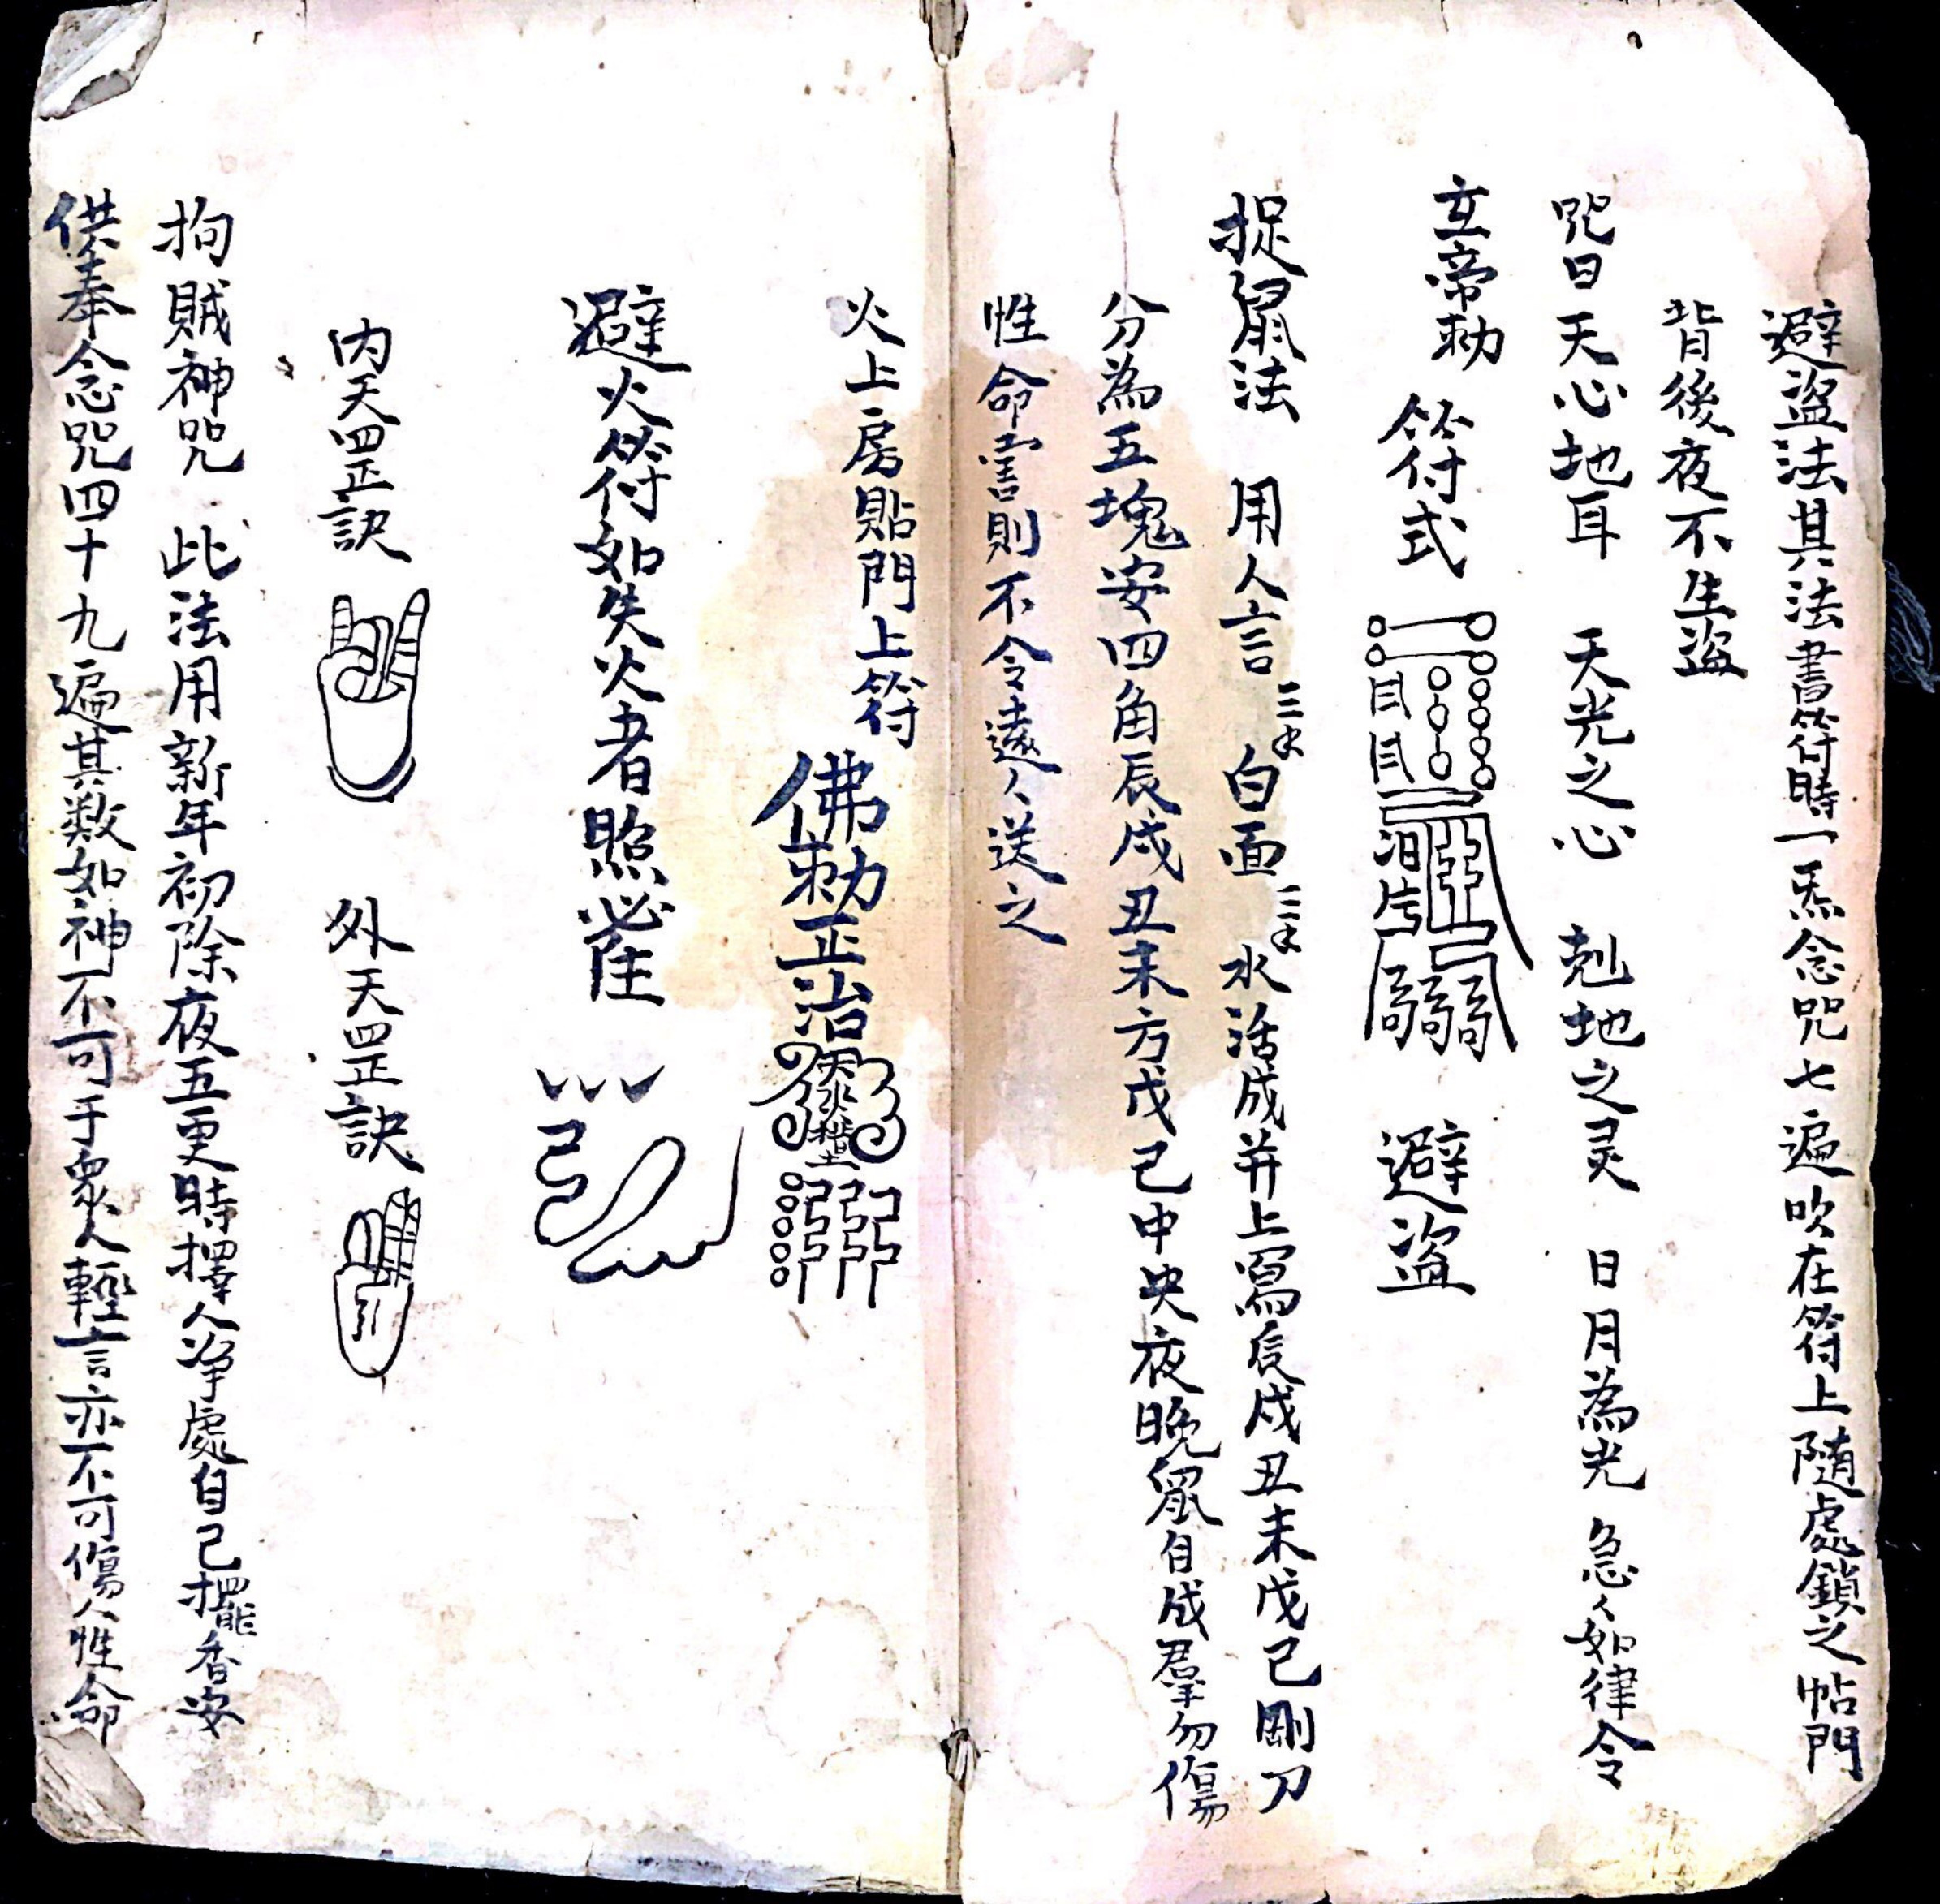 避盜法其法書符時一炁念咒七遍吹在符上隨處鎖之帖門
背後夜不生盜
咒曰天心地耳 天光之心 尅地之灵 日月為光 急〻如律令
玄帝勅 符式 避盜
捉鼠法 用人言三 白面二 水活成并上寫辰戌丑未戊己剛刀
分為五塊安四角辰戌丑未方戊己中央夜晚鼠自成羣勿傷
性命害則不令遠〻送之
火上房貼門上符 佛勅正治
避火符如失火者照
内天罡訣 外天罡訣
拘賊神咒 此法用新年初除夜五更時擇人净處自己擺香安
供奉念咒四十九遍其数如神不可于衆人輕言亦不可傷人性命